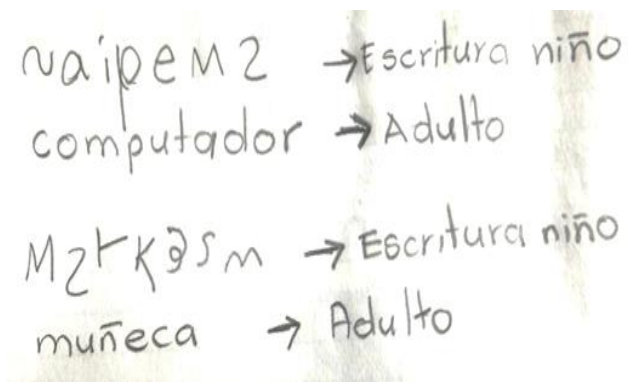 vaipemz → Escritura niño
computador → Adulto
MzrKasm → Escritura niño
muñeca → Adulto